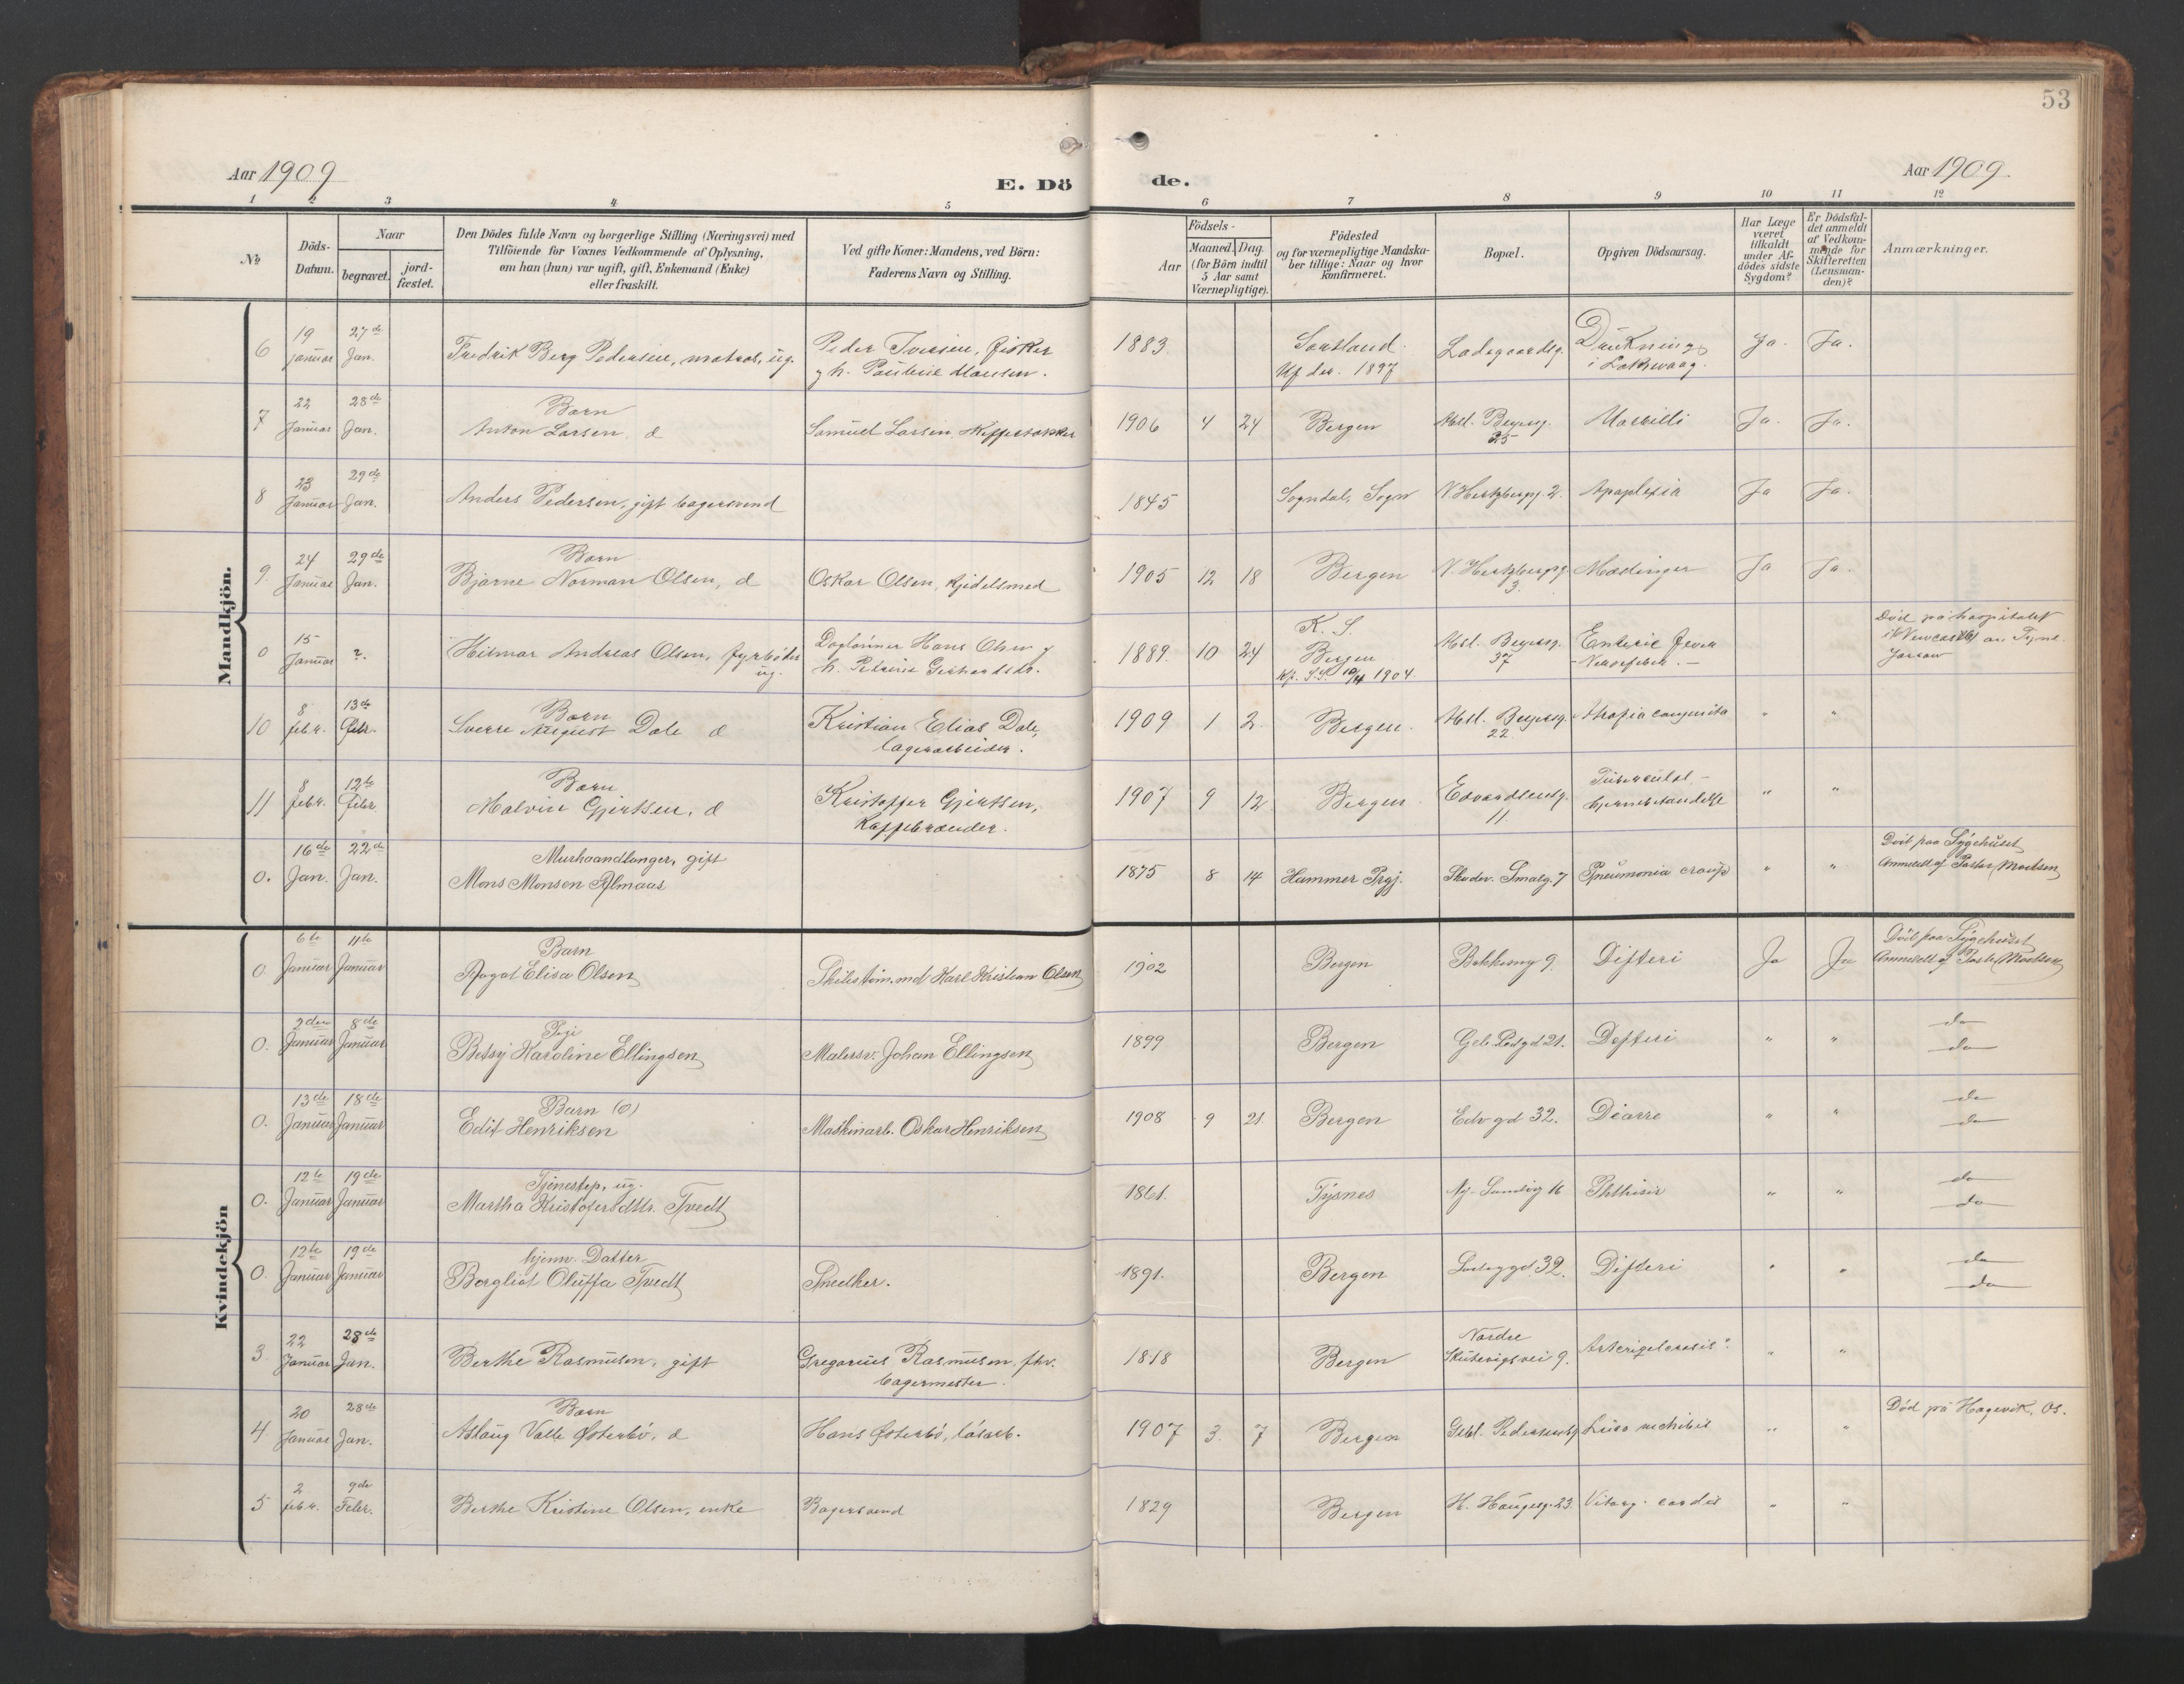 53
Aar 1909
E. Dö
de.
Aar 1909.
1 2 3 4 5 6 7 8 9 10 11 12
No
Döds-
Datum.
Naar
begravet.
jord-
fæstet.
Den Dödes fulde Navn og borgerlige Stilling (Næringsvei) med
Tilföiende for Voxnes Vedkommende af Oplysning,
om han (hun) var ugift, gift, Enkemand (Enke)
eller fraskilt.
Ved gifte Koner: Mandens, ved Börn:
Faderens Navn og Stilling.
Födsels-
Aar
Maaned. Dag.
(for Börn indtil
5 Aar samt
Værnepligtige).
Födested
og for værnepligtige Mandska-
ber tillige: Naar og hvor
konfirmeret.
Bopæl.
Opgiven Dödsaarsag.
Har Læge
været
tilkaldt
under Af-
dödes sidste
Sygdom?
Er Dödsfal-
det anmeldt
af Vedkom-
mende for
Skifteretten
(Lensman-
den)?
Anmærkninger.
Mandkjön.
6 19 januar 27de Jan. Fredrik Berg Pedersen, matros, ug. Peder Iversen, fisker
g h. Pauline Hansen. 1883 Sortland. Ladegaardsg. Drukning Ja. Ja.
1897 i Laksevaag.
7 22 Januar 28de Jan. Barn
Anton Larsen d Samuel Larsen 1906 4 24 Bergen 25 Ja. Ja.
8 23 Januar 29de Jan. Anders Pedersen, gift bagersvend 1845 Sogndal, Sogn N. Hertzbergg. 2. Apoplexia Ja Ja.
9. 24 Januar 29de Jan. Barn
Bjarne Norman Olsen, d Oskar Olsen, kjedelsmed 1905 12 18 Bergen N. Hertzbergg.
3. Mæslinger Ja Ja.
0 15 Januar ?. Hilmar Andreas Olsen, fyrbøder
ug. Hans Olsen g
h. Petrine 1889. 10 24 K. S.
Bergen
1904. 37 Enteric fever
Død på hospitalet
i Newcastle on Tyne.
Jarrow
10 8 febr. 13de Febr. Barn
Sverre August Dale d Kristian Elias Dale,
lagerarbeider. 1909 1 2. Bergen. 22. Atrofia congenita " "
11 8 febr. 12te Febr Barn
Malvin Gjertsen, d Kristoffer Gjertsen,
Kaffebrænder. 1907 9 12. Bergen Edvardseng.
11. Tuberculøs -
hjernebetændelse " "
0. 16de Jan. 22de Jan. Murhaandlanger, gift
Mons Monsen Almaas 1875 8 14 Hammer Prgj. Smalg. 7 Pneumonia croup " " Död paa Sygehuset
Anmeldt af Pastor Madsen
Kvindekjön
0 6te Januar 11te Januar Barn
Aagot Elisa Olsen Karl Kristian Olsen 1902 Bergen 9. Difteri Ja Ja Död paa Sygehuset
Anmeldt af Pastor Madsen
0. 2den Januar 8de Januar Pige
Betsy Karoline Ellingsen Malersv. Johan Ellingsen 1899 Bergen 21. Difteri " " do
do
0. 13de Januar 18de Januar Barn (o)
Edit Henriksen Maskinarb. Oskar Henriksen 1908 9 21. Bergen Edv gd 32. Diarre " " do
do
0. 12te Januar 19de Januar Tjenestep, ug.
Martha Kristofersdttr. Tvedt 1861. Tysnes Ny-Sandvig 16 Phthisis " " do
do
0. 12te Januar 19de Januar hjemv. Datter
Borgliot Oluffa Tvedt Snedker. 1891. Bergen 32. Difteri " " do
do
3. 22 Januar 28de Jan. Berthe Rasmusen, gift Gregorius Rasmusen, fhv.
bagermester. 1818 Bergen Nordre
Skutevigsvei 9. " "
4. 20 Januar 28de Jan. Barn
Aslaug Valle Østerbø, d Hans Østerbø, løsarb. 1907 3. 7 Bergen " " Død på Hagevik, Os.
5 2 febr. 9de Febr. Berthe Kristine Olsen, enke Bagersvend 1829 Bergen H. Haugesg. 23. Vitium cordis " "